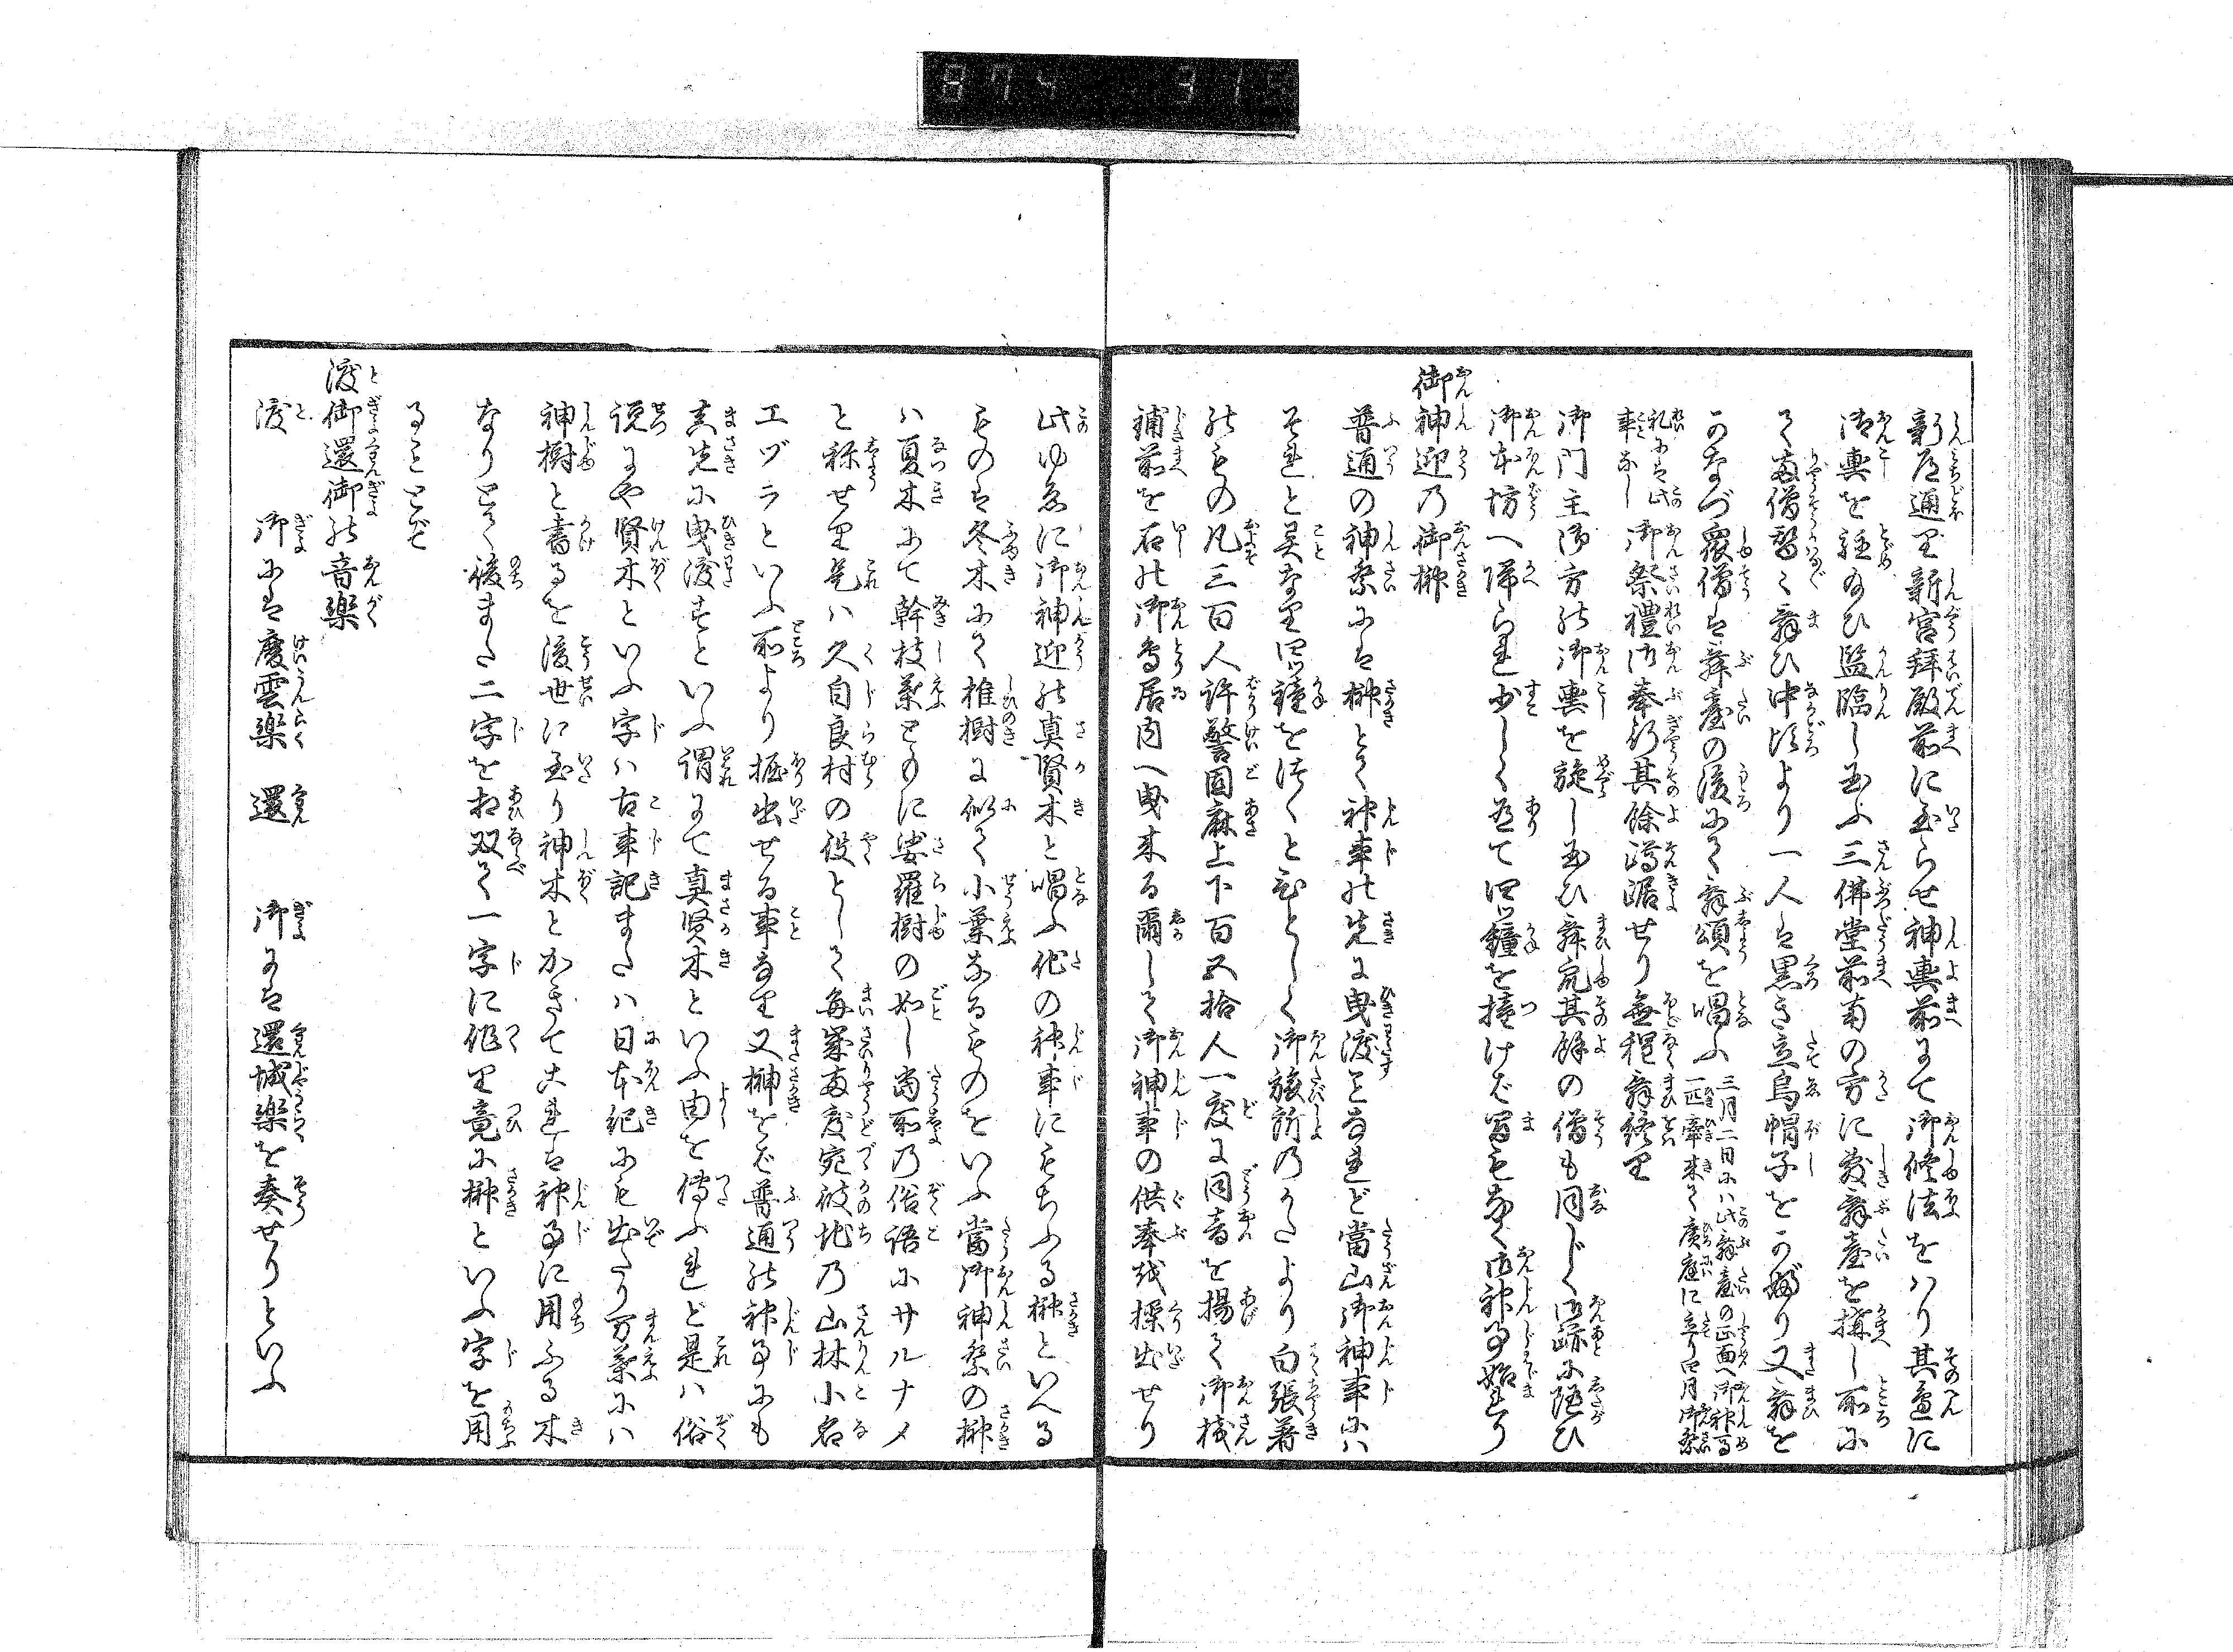 新道通り新宮拝殿前に至らせ神輿前にて御修法をハり其邊に
御輿を駐給ひ監臨し玉ふ三佛堂前南の方に敷舞臺を搆し所に
て両僧替く舞ひ中頃より一人は黒き立烏帽子をかぶり又舞を
かなづ衆僧は舞臺の後にて舞頌を唱ふ三月二日にハ此舞臺の正面へ御神馬一匹牽来て廣庭に立り四月御祭
礼にハ此事なし御祭禮御奉行其餘蹲踞せり無程舞終り
御門主御方の御輿を旋し玉ひ舞衆其餘の僧も同じく御跡に随ひ
御本坊へ帰られ少しく有て四ツ鐘を撞けば間もなく御神事始れり
御神迎乃御榊
普通の神祭にハ榊とて神事の先に曳渡となれど當山御神事にハ
それと異なり四ツ鐘をつくとひとしく御旅所乃かたより白張着
のもの凡三百人許警固麻上下百五拾人一度に同音を揚て御棧
補前を石の御鳥居内へ曳来る爾して御神事の供奉を操出せり
此ゆゑに御神迎の真賢木と唱ふ他の神事にもちふる榊といへる
ものは冬木にて椎樹に似て小葉なるものをいふ當御神祭の榊
ハ夏木にて幹枝葉ともに娑羅樹の如し當所乃俗語にサルナメ
と称せり是ハ久自良村の役として毎歳両度宛彼地乃山林小名
エヅラといふ所より掘出せる事なり又榊をば普通の神事にも
真先に曳渡すといふ謂にて真賢木といふ由を傳ふれど是ハ俗
説にや賢木といふ字ハ古事記またハ日本紀にも出たり万葉にハ
神樹と書るを後世に至り神木とかきてこれは神事に用ふる木
なりとて後また二字を相双て一字に作り竟に榊といふ字を用
ることとぞ
渡御還御の音楽
渡御には慶雲楽還御には還城楽を奏せりといふ